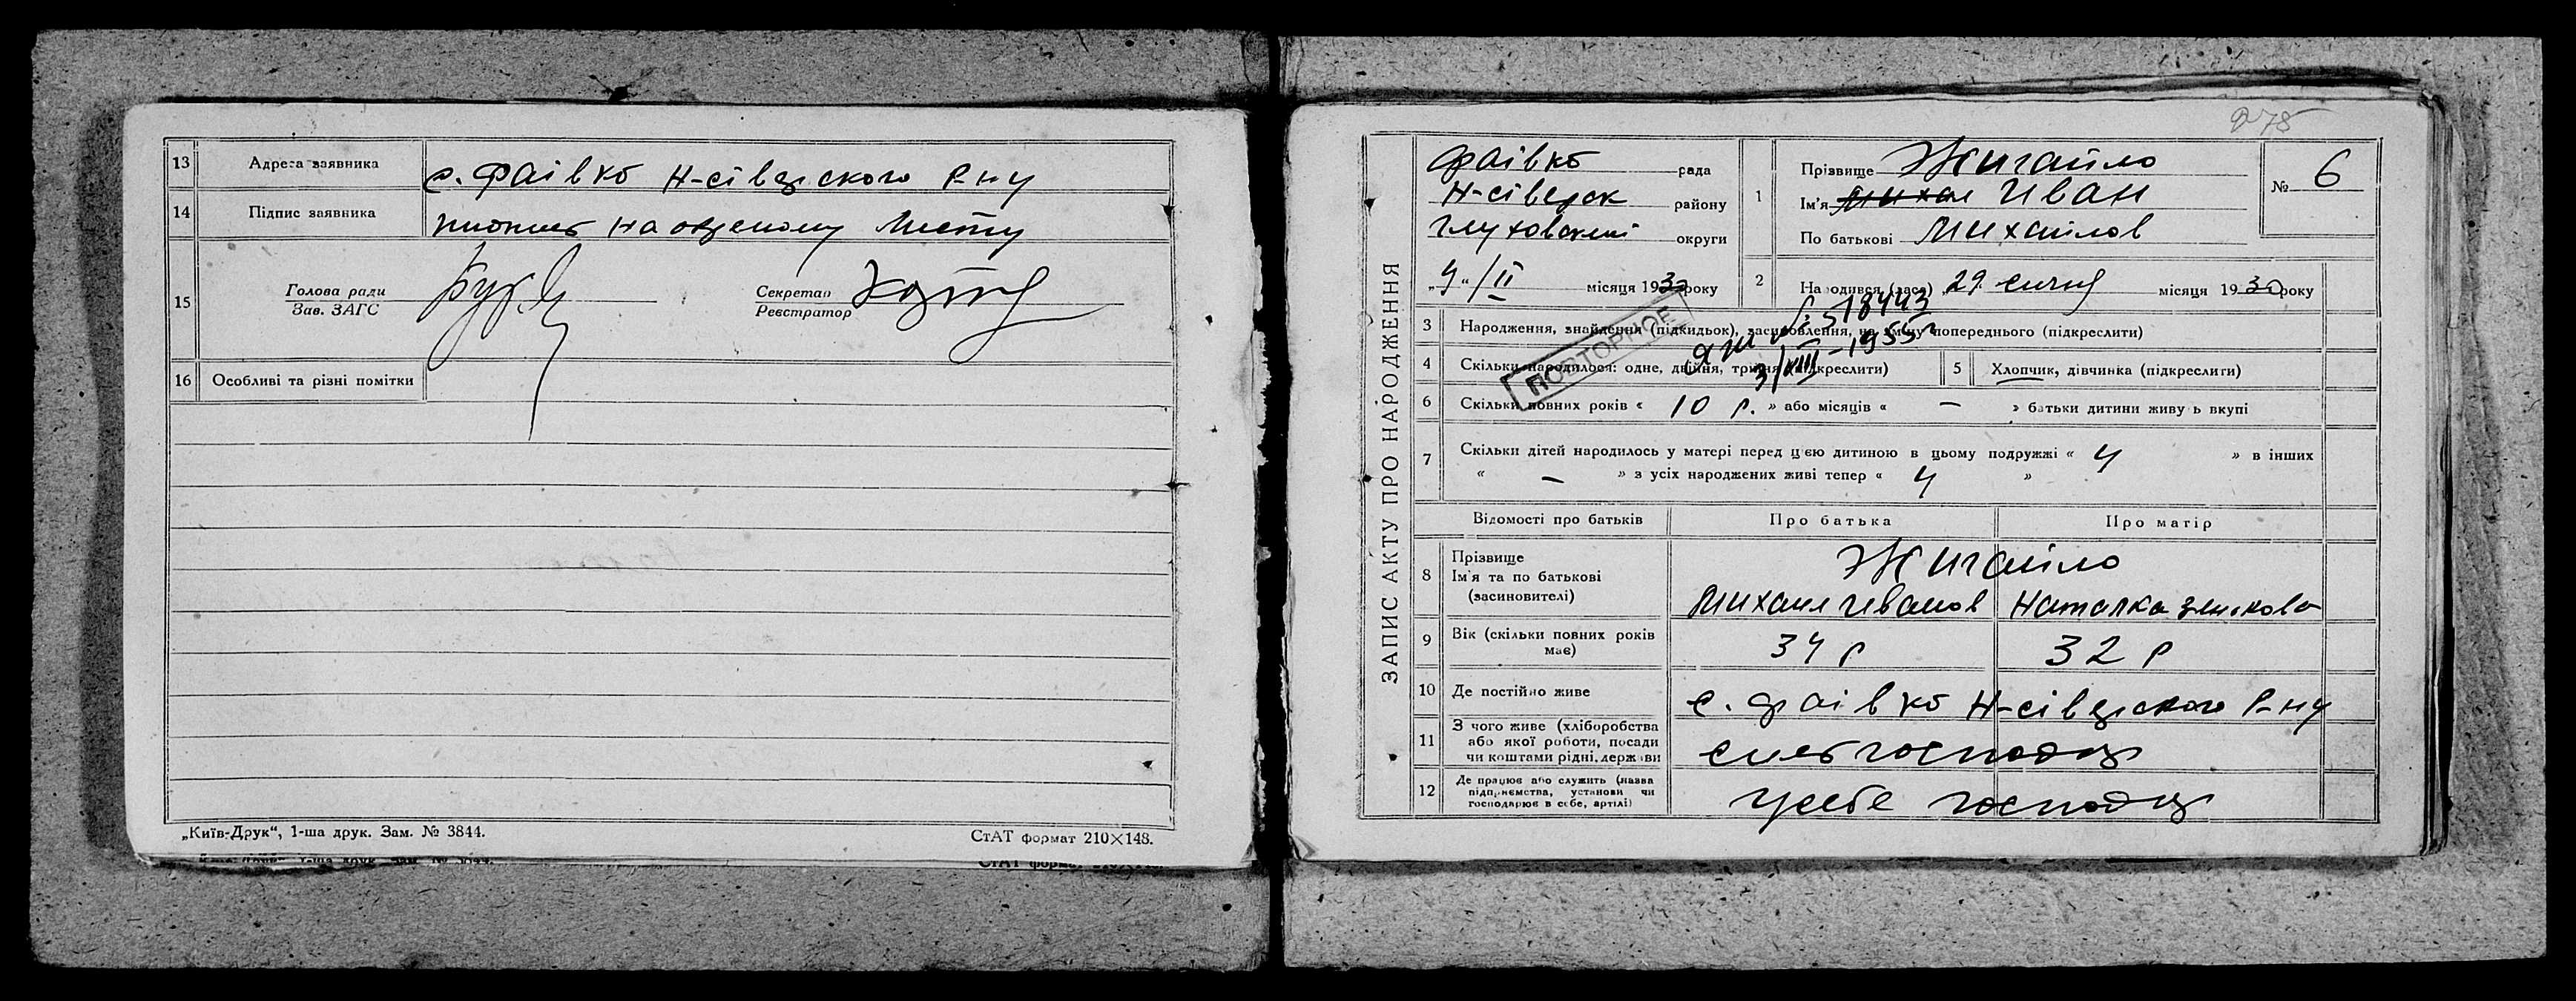 13 Адреса заявника с. Фаівкб Н-сіверского Р-ну
14 Підпис заявника на окремому Листу
15 Голова ради
Зав. ЗАГС
Секретар
Реєстратор
16 Особливі та різні помітки
„Київ-Друк“, 1-ша друк. Зам. № 3844.
СтАТ формат 210×148.
278
ЗАПИС АКТУ ПРО НАРОДЖЕННЯ
Фаівкб рада
Н-сіверск району
округи
„4“/II місяця 1930 року
1 Прізвище Жигайло
Ім'я Михаил Иван
По батькові Михайлов
№ 6
2 Народився (лася) „29 січня місяця 1930 року
518443
3 Народження, знайдення (підкидьок), засиновлення, на зміну попереднього (підкреслити)
ПОВТОРНОЕ
3/VIII-1955г
4 Скільки народилося: одне, двійня, трійня (підкреслити)
5 Хлопчик, дівчинка (підкреслити)
6 Скільки повних років « 10 р. » або місяців « — » батьки дитини живуть вкупі
7 Скільки дітей народилось у матері перед цією дитиною в цьому подружжі « 4 » в інших
« — » з усіх народжених живі тепер « 4 »
Відомості про батьків Про батька Про матір
8 Прізвище
Ім'я та по батькові
(засиновителі)
Жигайло
Михаил Иванов Наталка
9 Вік (скільки повних років
має)
34 р 32 р
10 Де постійно живе с. Фаівкб Н-сіверского Р-ну
11 З чого живе (хліборобства
або якої роботи, посади
чи коштами рідні, держави
сильгосподар
12 Де працює або служить (назва
підприємства, установи чи
господарює в себе, артілі)
усебе господар